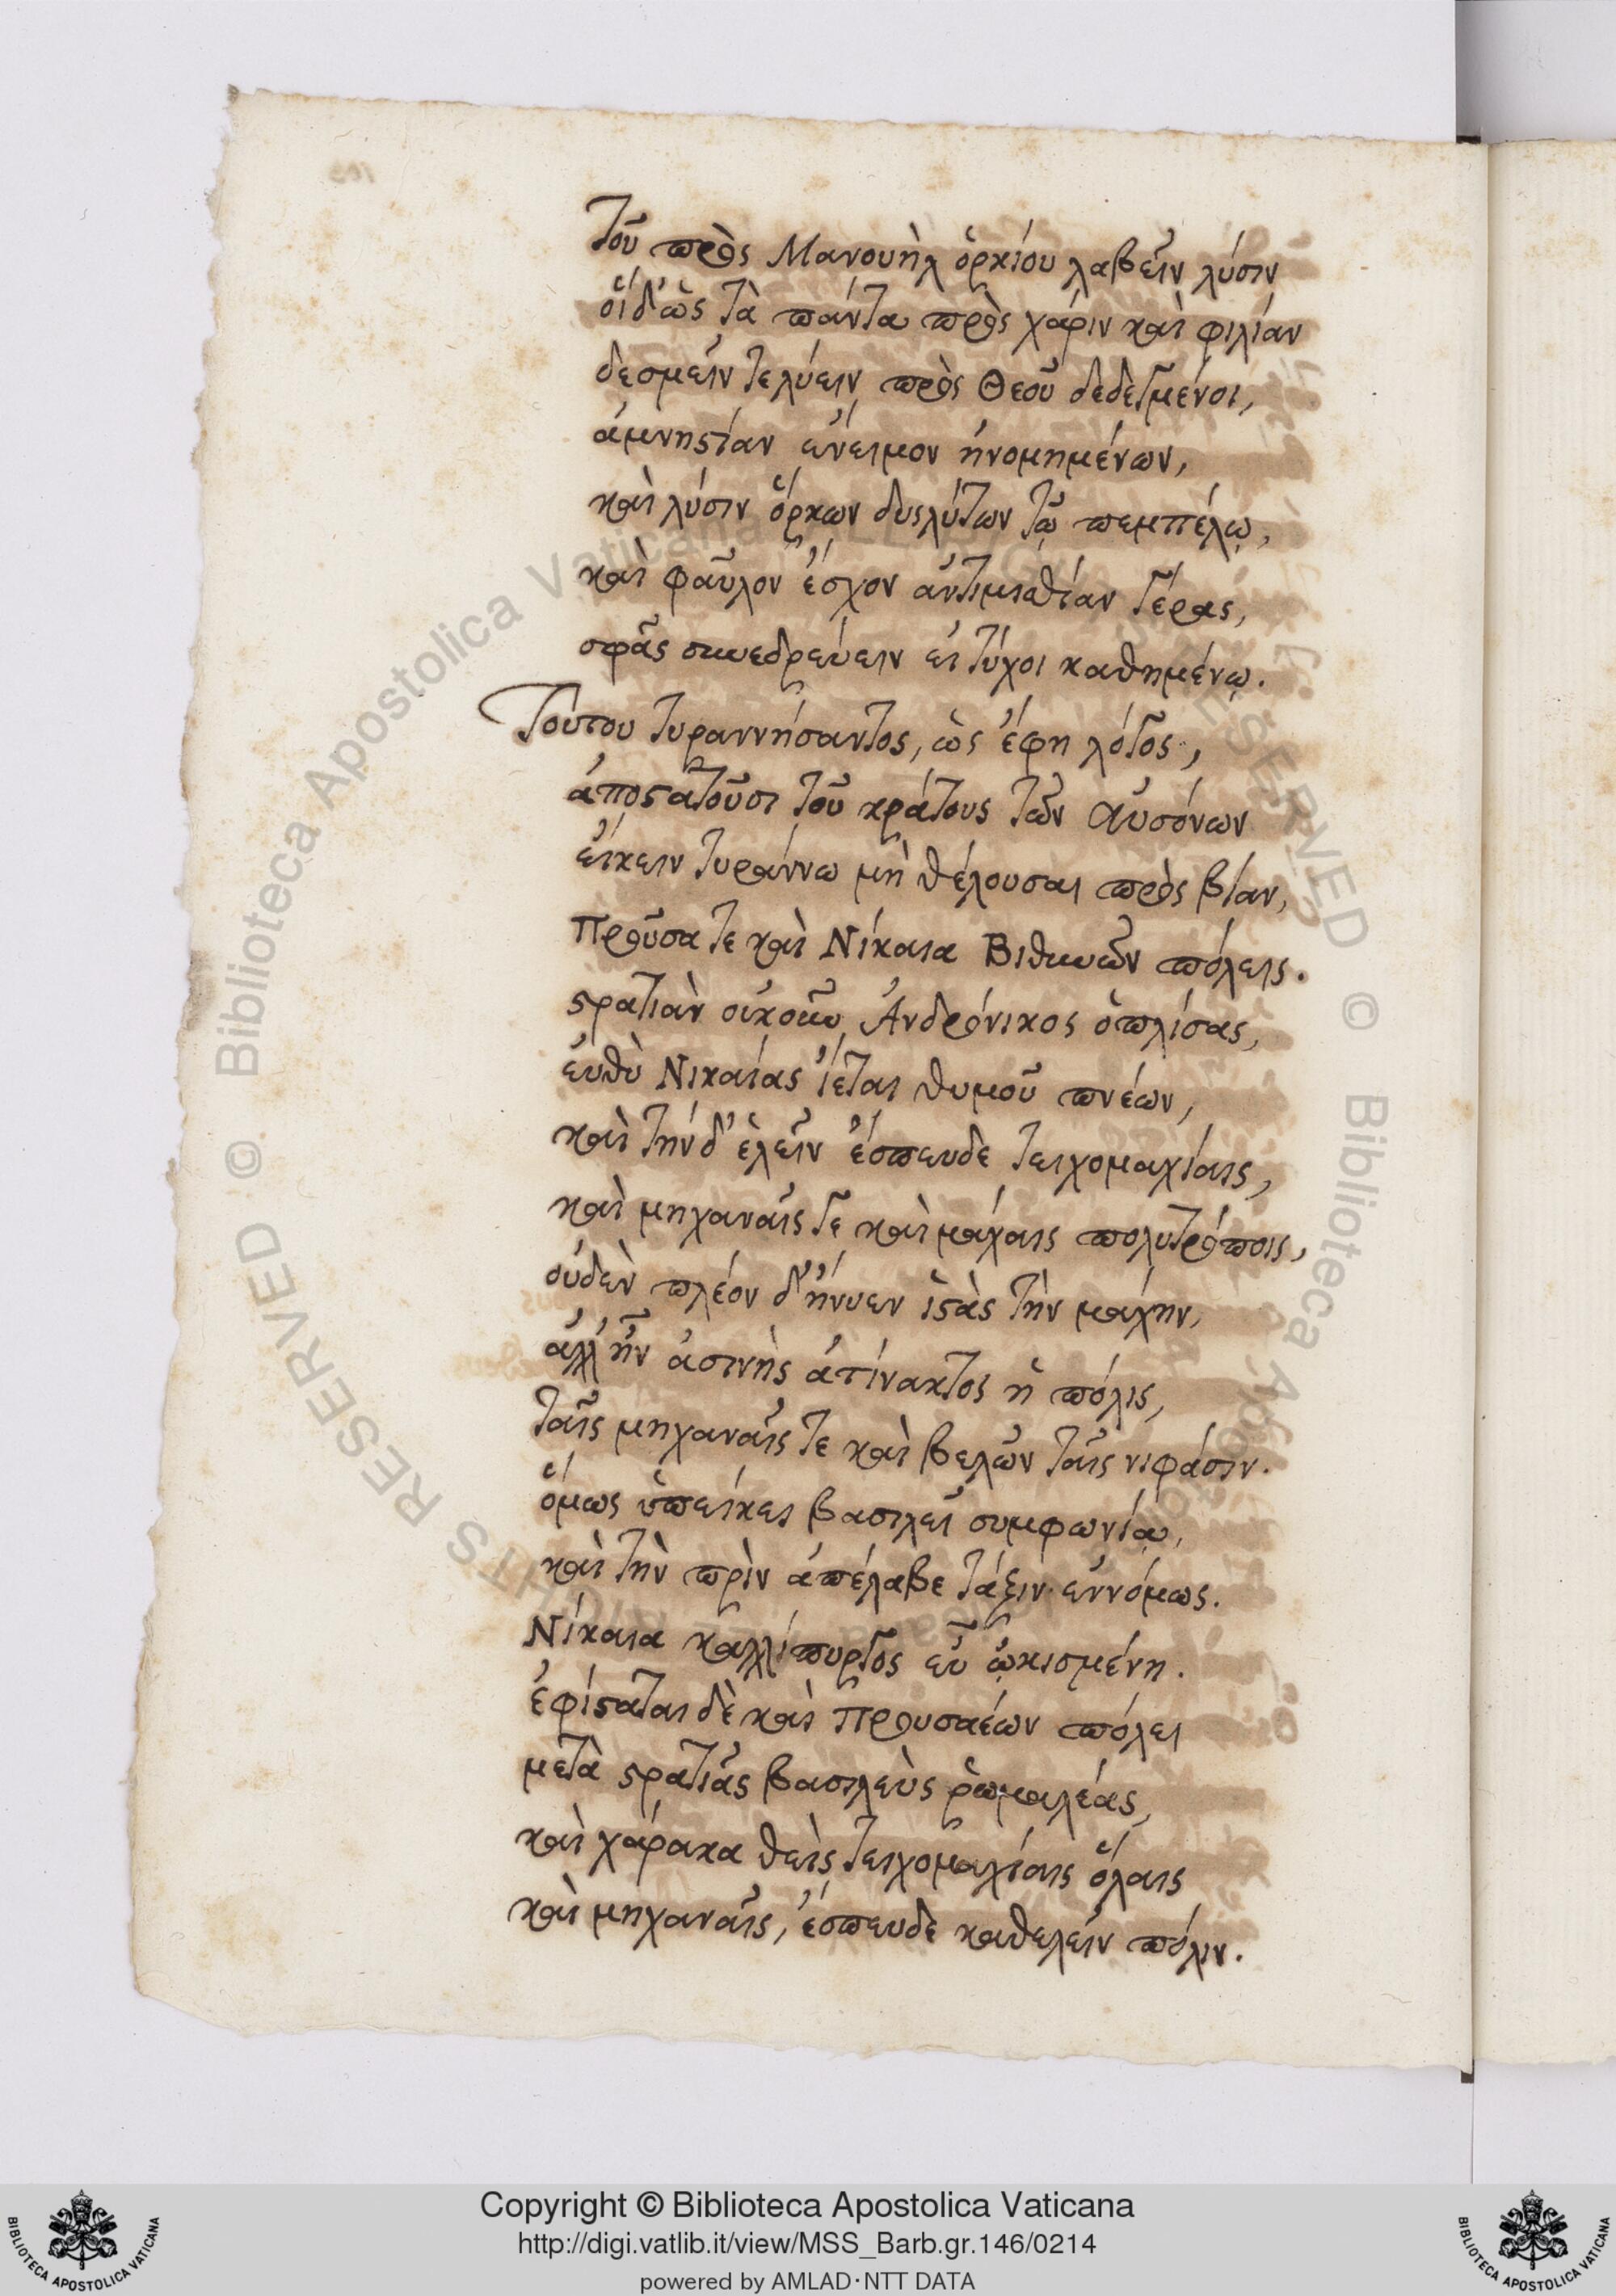 Τοῦ πρὸς Μανουὴλ ὁρκίου λαβεῖν λύσιν
οἱ δ' ὡς τὰ πάντα πρὸς χάριν καὶ φιλίαν
δεσμεῖν τε λύειν πρὸς Θεοῦ δεδεγμένοι,
ἀμνηστίαν ἔνειμον ἠνομημένων,
καὶ λύσιν ὅρκων δυσλύτων τῷ πεμπέλῳ,
καὶ φαῦλον ἔσχον ἀντιμισθίαν γέρας,
σφᾶς συνεδρεύειν εἰ τύχοι καθημένῳ.
Τούτου τυραννήσαντος, ὡς ἔφη λόγος,
ἀποστατοῦσι τοῦ κράτους τῶν Αὐσόνων
εἴκειν τυράννω μὴ θέλουσαι πρὸς βίαν,
Προῦσα τε καὶ Νίκαια Βιθυνῶν πόλεις.
στρατιὰν οὐκοῦν Ἀνδρόνικος ὁπλίσας,
εὐθὺ Νικαίας ἵεται θυμοῦ πνέων,
καὶ τήνδ' ἑλεῖν ἔσπευδε τειχομαχίαις,
καὶ μηχαναῖς γε καὶ μάχαις πολυτρόποις,
οὐδὲν πλέον δ' ἤνυεν ἱστὰς τὴν μάχην,
ἀλλ' ἦν ἀσινὴς ἀτίνακτος ἡ πόλις,
ταῖς μηχαναῖς τε καὶ βελῶν ταῖς νιφάσιν.
ὅμως ὑπείκει βασιλεῖ συμφωνίᾳ,
καὶ τὴν πρὶν ἀπέλαβε τάξιν εὐνόμως.
Νίκαια καλλίπυργος εὖ ᾠκισμένη.
ἐφίσταται δὲ καὶ Προυσαέων πόλει
μετὰ στρατιᾶς βασιλεὺς ῥωμαλέας,
καὶ χάρακα θεὶς τειχομαχίαις ὅλαις
καὶ μηχαναῖς, ἔσπευδε καθελεῖν πόλιν.
© Biblioteca Apostolica Vaticana
ALL RIGHTS RESERVED
Copyright © Biblioteca Apostolica Vaticana
http://digi.vatlib.it/view/MSS_Barb.gr.146/0214
powered by AMLAD·NTT DATA
BIBLIOTECA APOSTOLICA VATICANA
BIBLIOTECA APOSTOLICA VATICANA